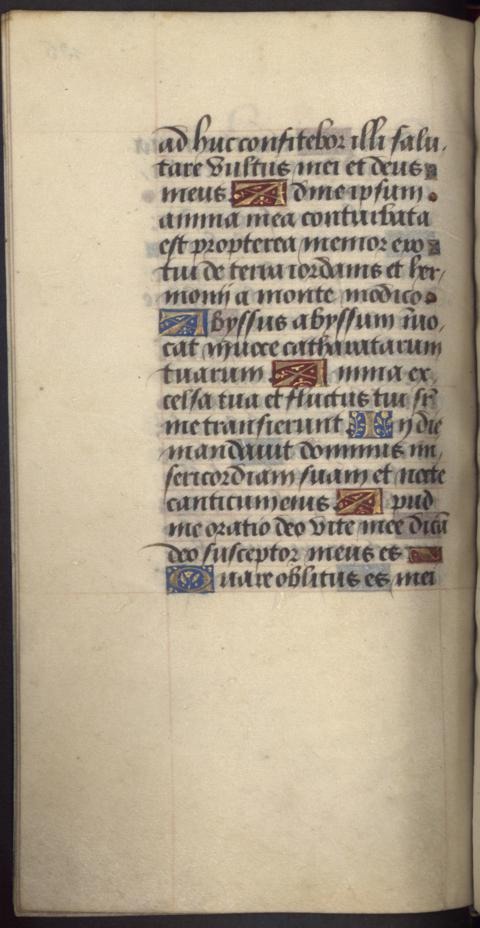 ad huc confitebor illi salu,
tare vultus mei et deus
meus A d me ipsum
anima mea conturbata
est propterea memor ero
tui de terra iordanis et her,
monij a monte modico
A byssus abyssum inuo,
cat in voce catharatarum
tuarum O mnia ex,
celsa tua et fluctus tui sr̄
me transierunt I n die
mandauit dominus mi,
sericordiam suam et nocte
canticum eius A pud
me oratio deo vite mee dicā
deo susceptor meus es
Q uare oblitus es mei